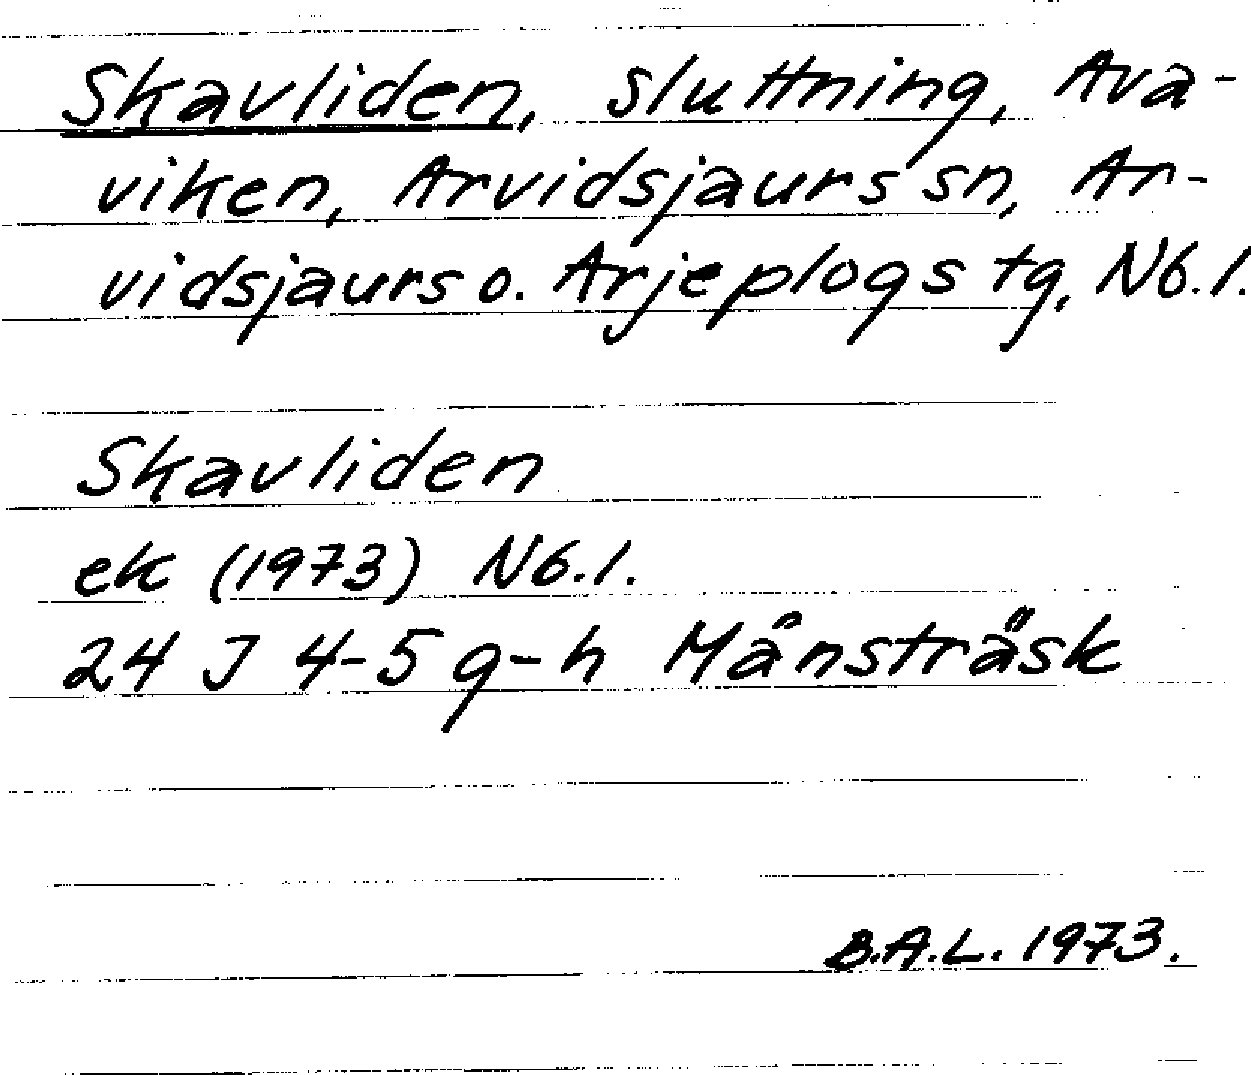 Skavliden, sluttning, Ava-
viken, Arvidsjaurs sn, Ar-
vidsjaurs o. Arjeplogs tg, Nb.l.
Skavliden
ek (1973) Nb.l.
24 J 4-5 g-h Månsträsk
B.A.L. 1973.